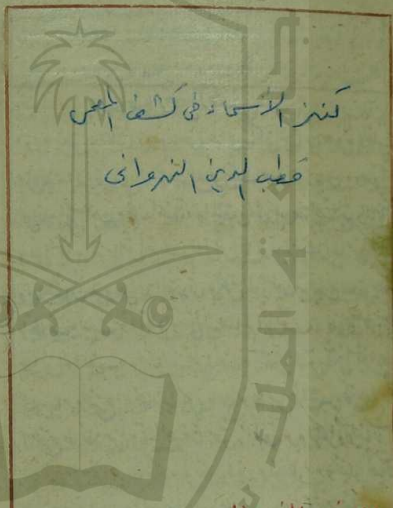 كنز الأسماء في كشف المعمى
قطب الدين النهرواني